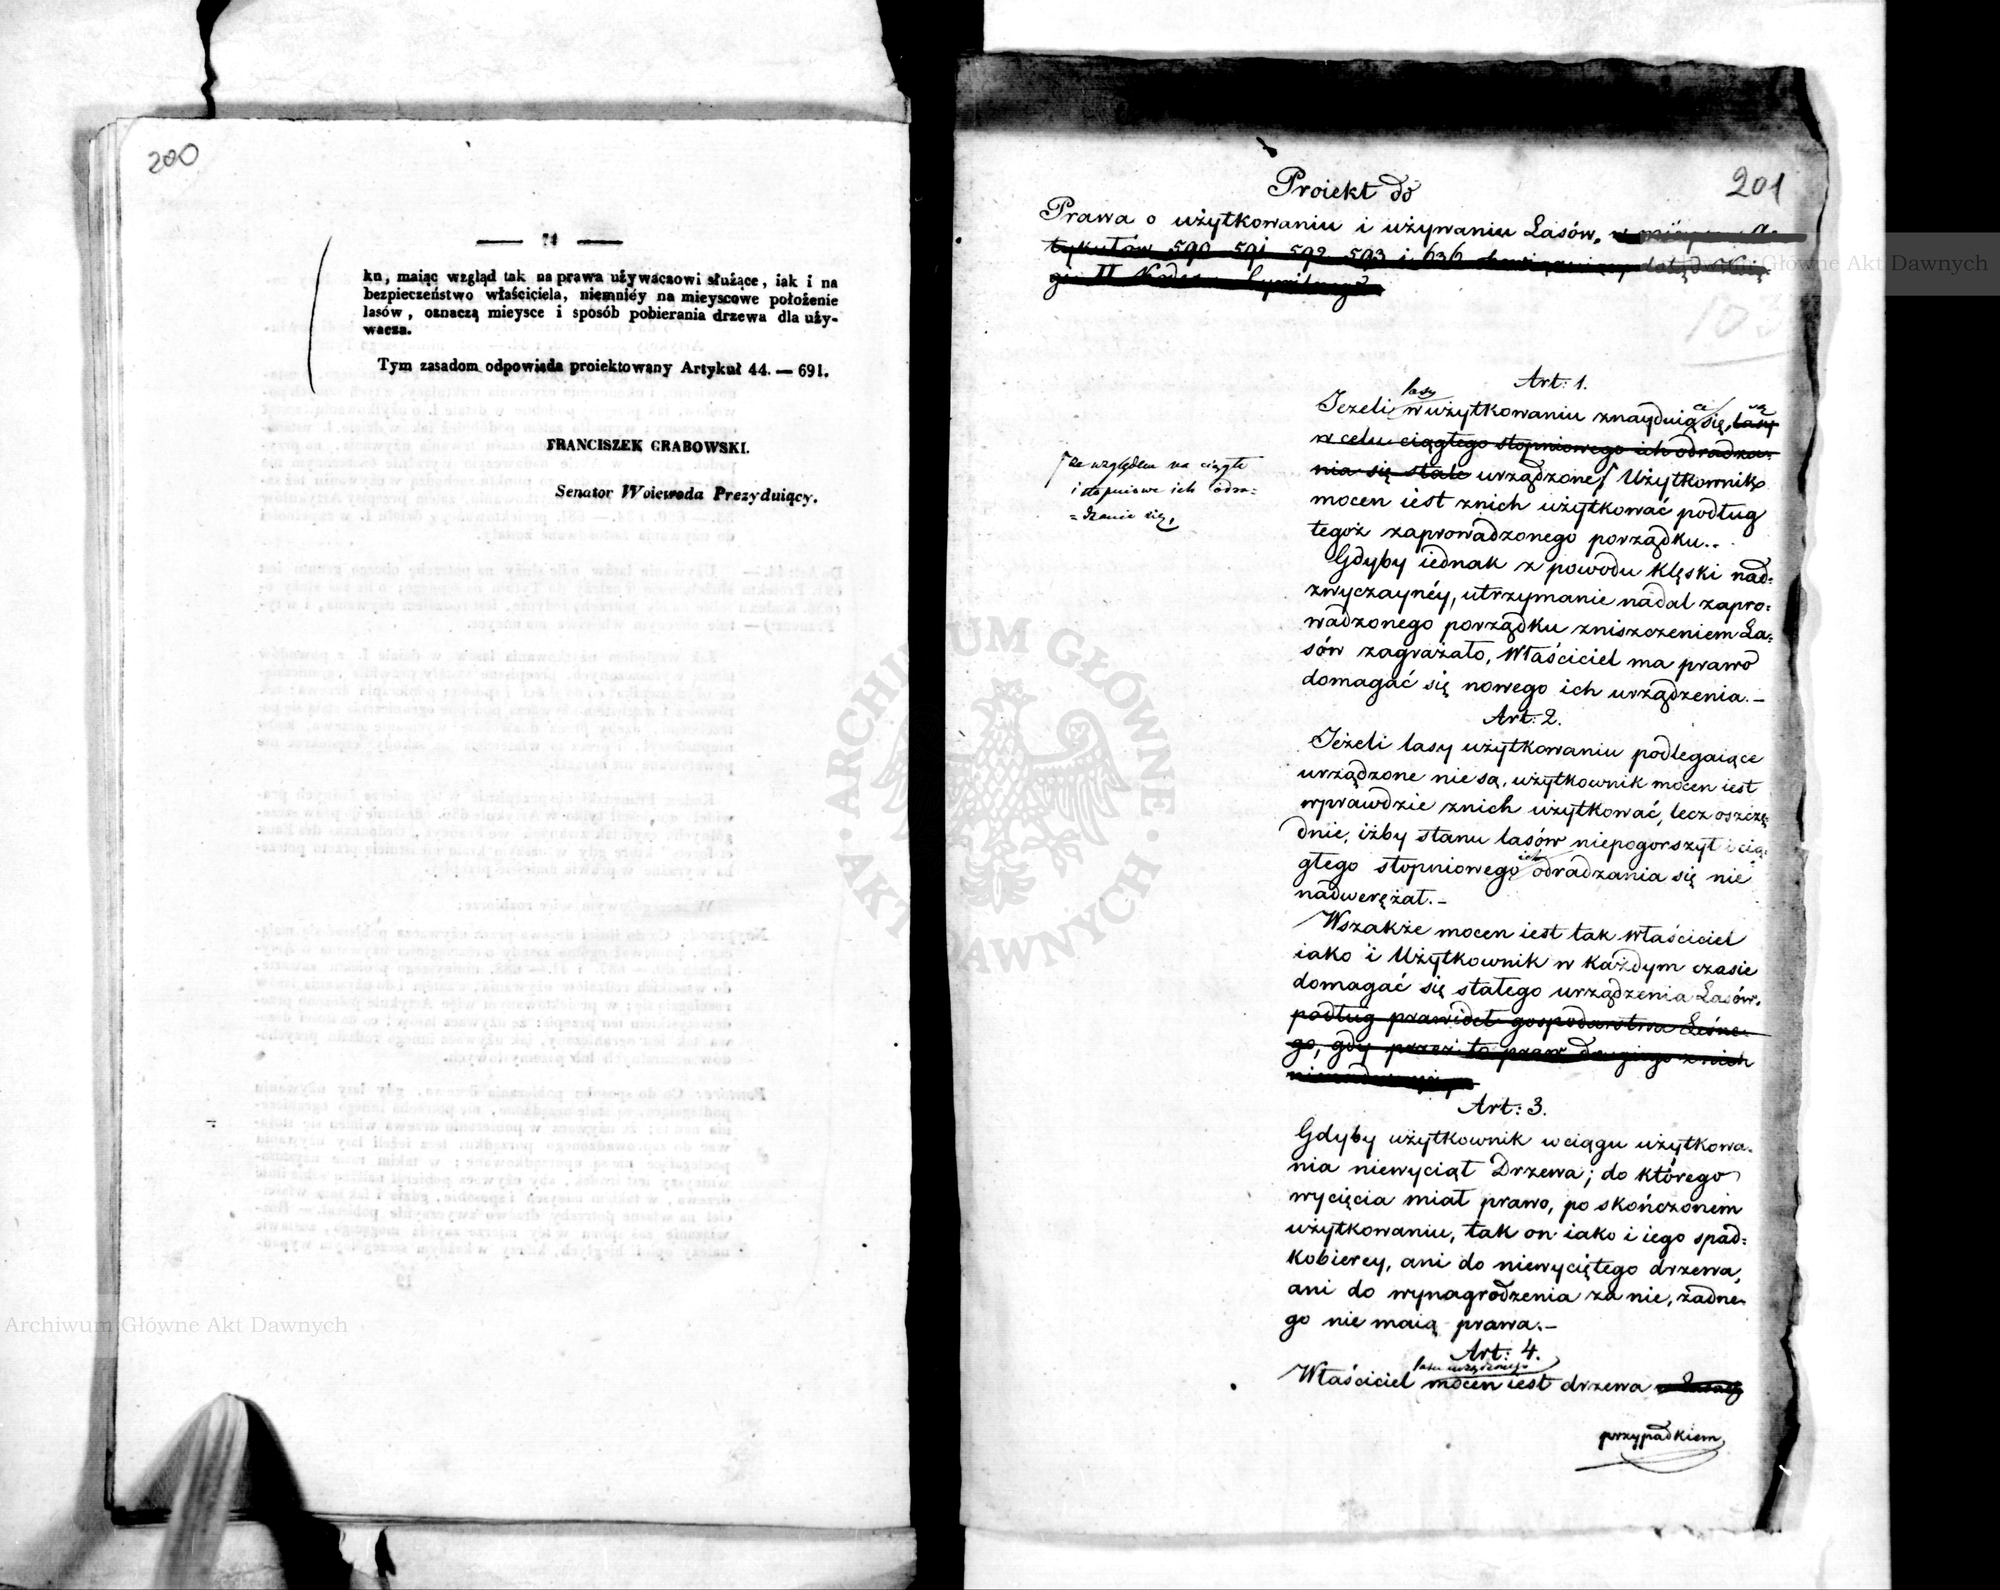 200
— 74 —
ku, maiąc wzgląd tak na prawa używaczowi służące, iak i na
bezpieczeństwo właściciela, niemniéy na mieyscowe położenie
lasów, oznaczą mieysce i sposób pobierania drzewa dla uży-
wacza.
Tym zasadom odpowiada proiektowany Artykuł 44. — 691.
FRANCISZEK GRABOWSKI.
Senator Woiewoda Prezyduiący.
Archiwum Główne Akt Dawnych
201
Proiekt do
Prawa o użytkowaniu i używaniu Lasów,
tykułów 590 591 592 593 i 636
gi II Kodexu Cywilnego
Art: 1.
lasy
Jeżeli w użytkowaniu znayduią się, lasy
w celu ciągłego stopniowego ich odradza-
nia się stale urządzone, Użytkownik
ze względem na ciągłe
i stopniowe ich odra=
=dzanie się,
mocen iest z nich użytkować podług
tegoż zaprowadzonego porządku..
Gdyby iednak z powodu klęski nad=
zwyczaynéy, utrzymanie nadal zapro=
wadzonego porządku zniszczeniem La=
sów zagrażało, Właściciel ma prawo
domagać się nowego ich urządzenia.—
Art: 2.
Jeżeli lasy użytkowaniu podlegaiące
urządzone nie są, użytkownik mocen iest
wprawdzie z nich użytkować, lecz oszczę
dnie, iżby stanu lasów niepogorszył i cią=
ich
głego stopniowego odradzania się nie
nadwerężał.—
Wszakże mocen iest tak właściciel
iako i Użytkownik w każdym czasie
domagać się stałego urządzenia Lasów.
podług prawideł gospodarstwa Leśne-
go, gdy przez to praw drugiego z nich
Art: 3.
Gdyby użytkownik w ciągu użytkowa=
nia niewyciął Drzewa; do którego
wycięcia miał prawo, po skończonem
użytkowaniu, tak on iako i iego spad=
kobiercy, ani do niewyciętego drzewa,
ani do wynagrodzenia za nie, żadne-
go nie maią prawa.—
Art: 4.
lasu urządzonego
Właściciel mocen iest drzewa w Lasach
przypadkiem
ARCHIWUM GŁÓWNE · AKT DAWNYCH ·
Archiwum Główne Akt Dawnych